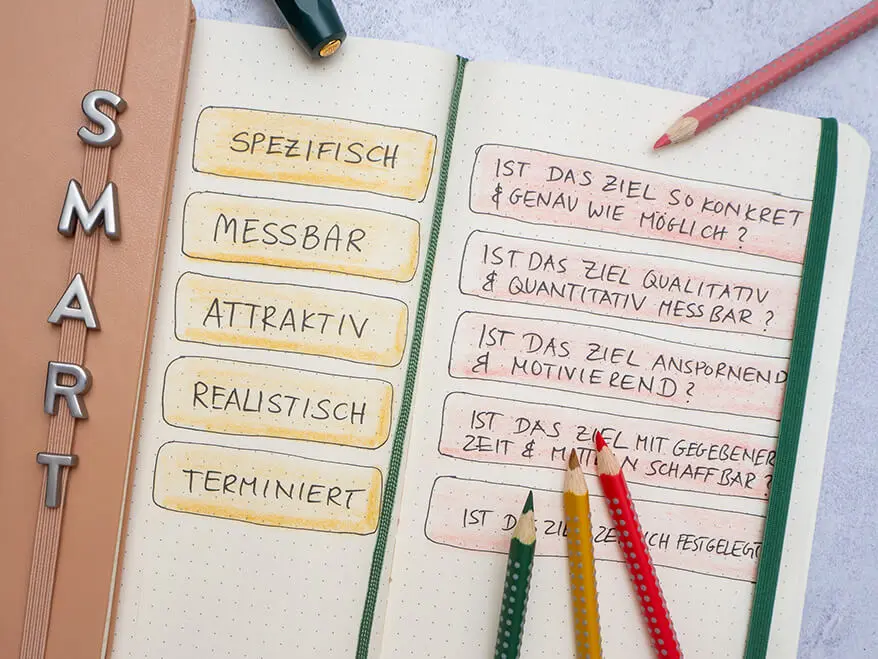 SMART
SPEZIFISCH
MESSBAR
ATTRAKTIV
REALISTISCH
TERMINIERT
IST DAS ZIEL SO KONKRET
& GENAU WIE MÖGLICH ?
IST DAS ZIEL QUALITATIV
& QUANTITATIV MESSBAR ?
IST DAS ZIEL ANSPORNEND
& MOTIVIEREND ?
IST DAS ZIEL MIT GEGEBENER
ZEIT & SCHAFFBAR ?
IST DAS ZIEL FESTGELEGT